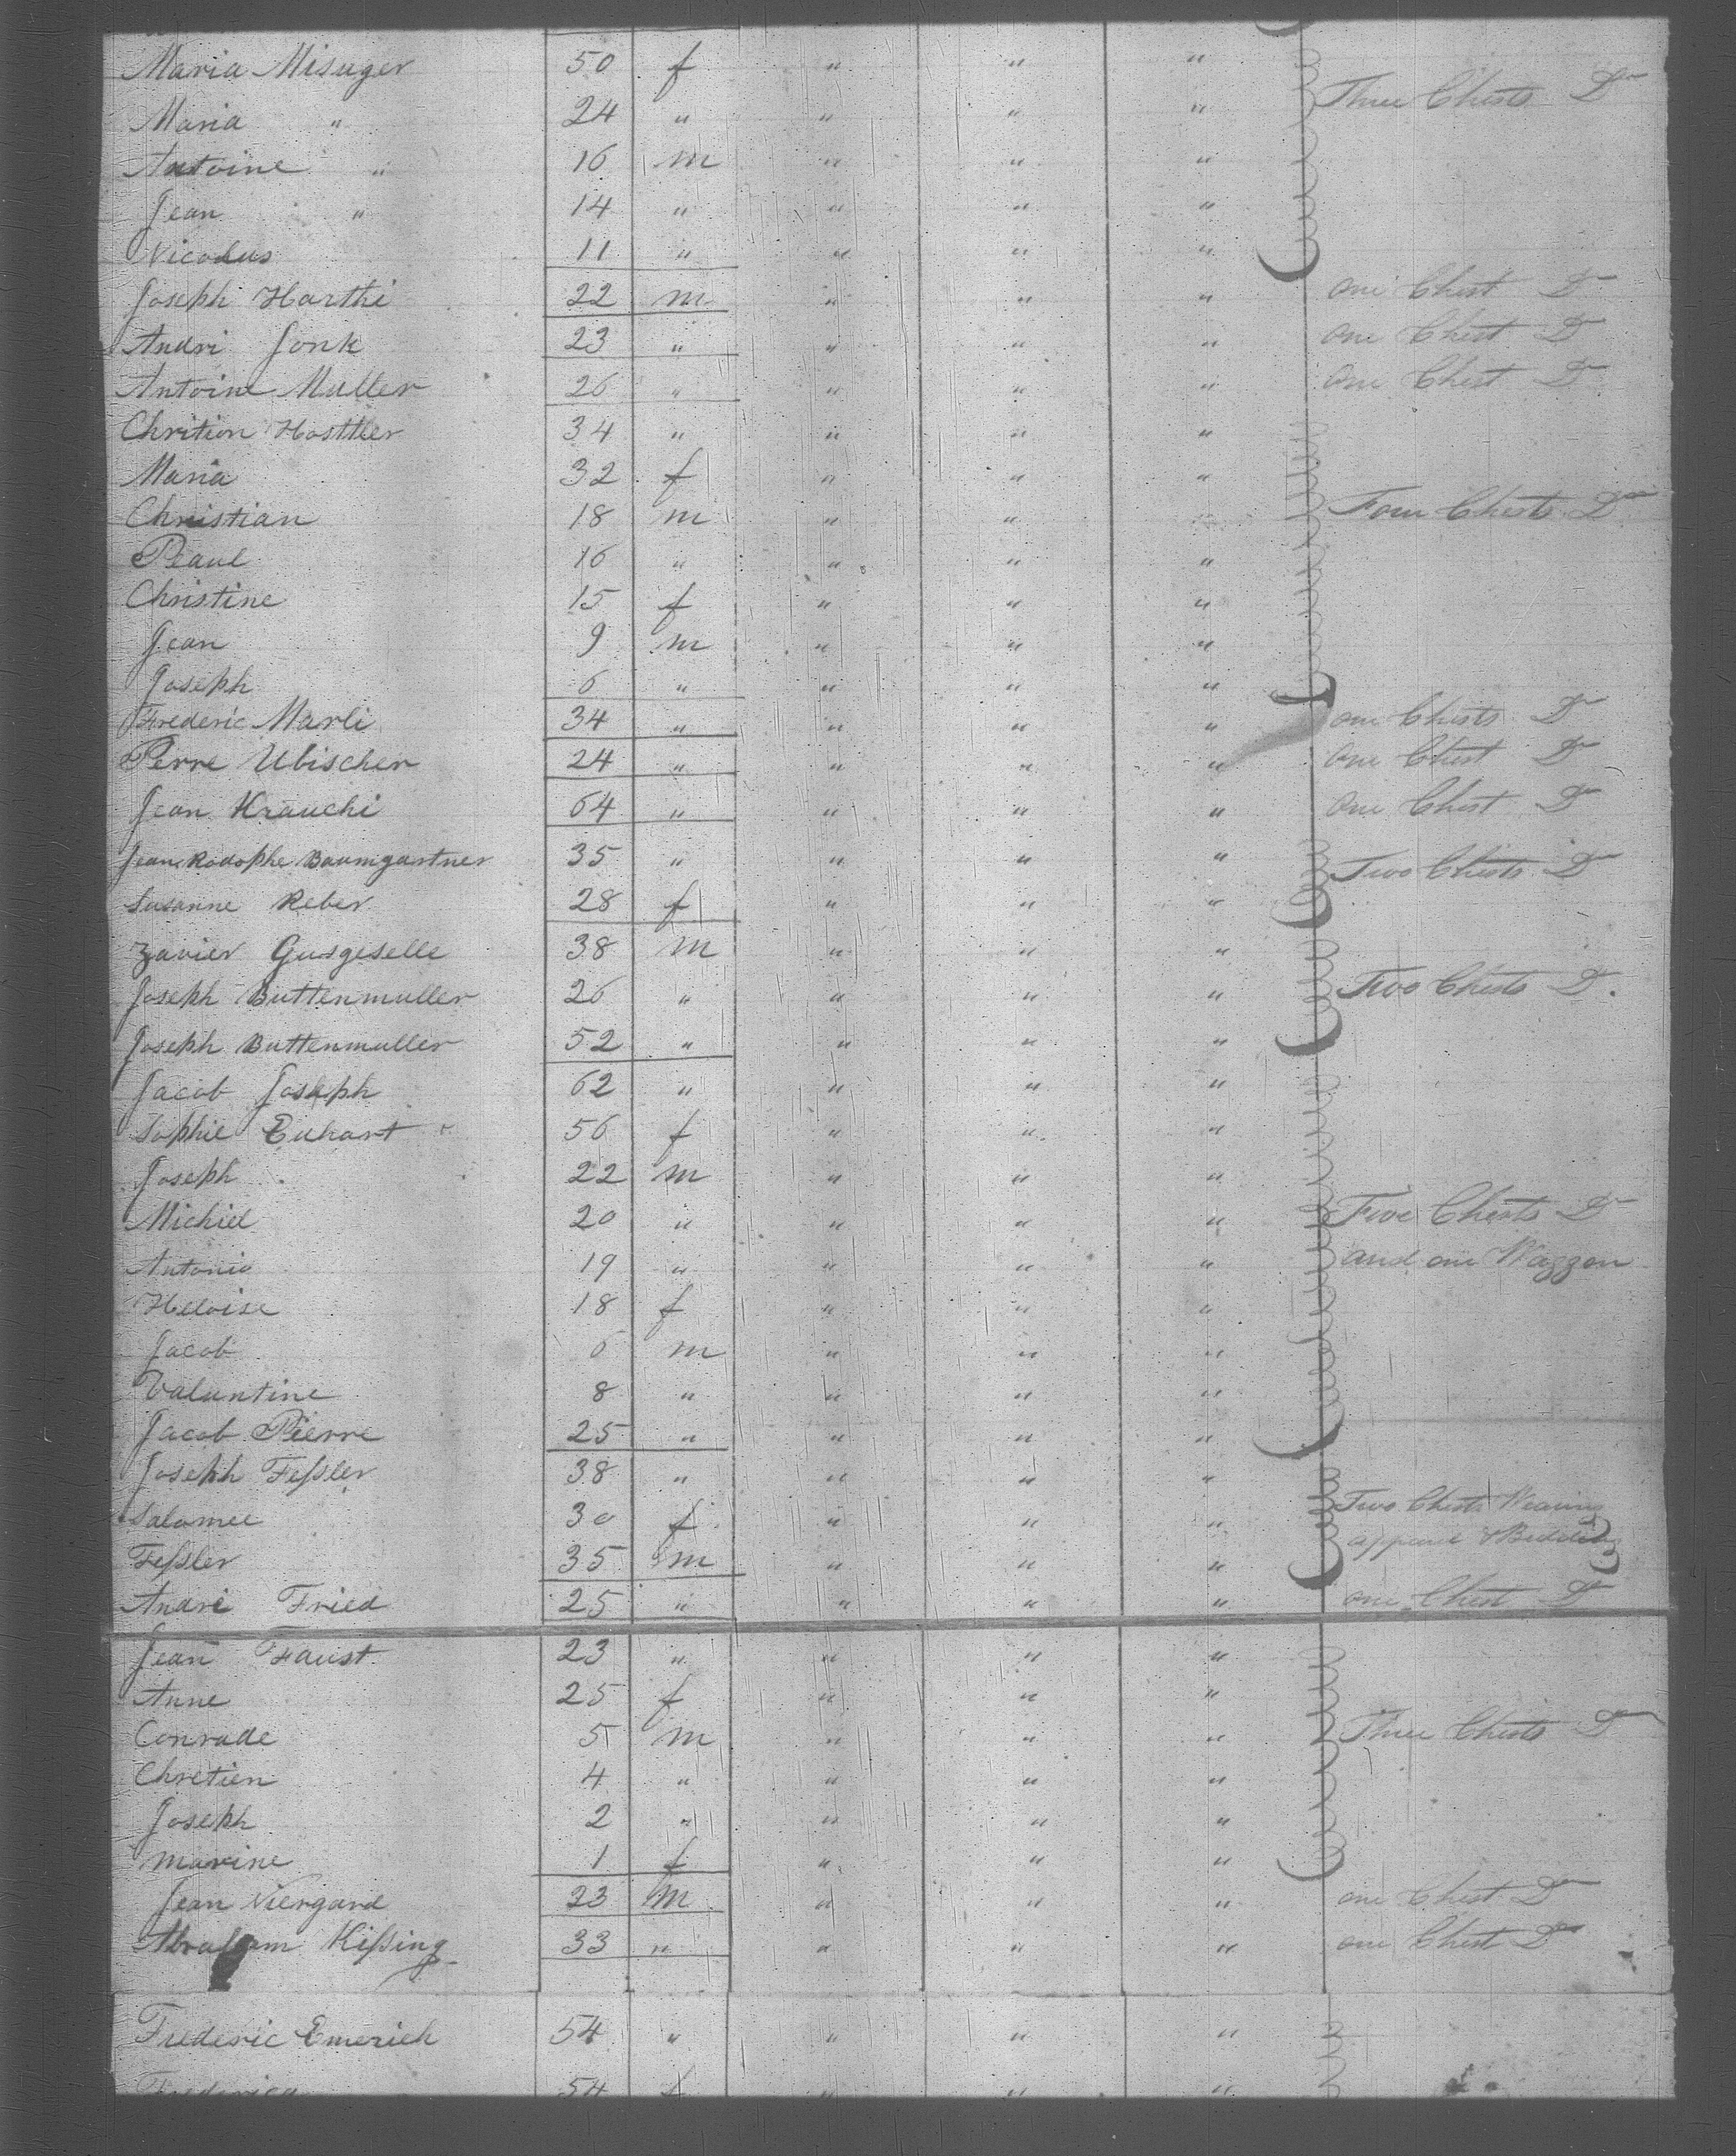 Maria Misuger 50 f " " " Three Chests Do
Maria " 24 " " " "
Antoine " 16 m " " "
Jean " 14 " " " "
Nicodus 11 " " " "
Joseph Harthi 22 m " " " one Chest Do
Andri Jonk 23 " " " " one Chest Do
Antoine Muller 26 " " " " one Chest Do
Chrition Hosttler 34 " " " "
Maria 32 f " " "
Christian 18 m " " " Four Chests Do
Peaul 16 " " " "
Christine 15 f " " "
Jean 9 m " " "
Joseph 6 " " " "
Frederic Marli 34 " " " " one Chests Do
Perre Ubischer 24 " " " " one Chest Do
Jean Krauchi 64 " " " " one Chest Do
Jean Rodophe Baumgartner 35 " " " " Two Chests Do
Susanne Reber 28 f " " "
Zavier Gusgeselle 38 m " " "
Joseph Buttenmuller 26 " " " " Two Chests Do.
Joseph Buttenmuller 52 " " " "
Jacob Joseph 62 " " " "
Sophie Euhart 56 f " " "
Joseph 22 m " " "
Michiel 20 " " " " Five Chests Do
Antonio 19 " " " " and one Waggon
Heloise 18 f " " "
Jacob 6 m " " "
Valuntine 8 " " " "
Jacob Pierre 25 " " " "
Joseph Feſsler 38 " " " "
Salomee 30 f " " " Two Chests Wearing
Feſsler 35 m " " " apparel & Bedding
Andri Fried 25 " " " " one Chest Do
Jean Faust 23 " " " "
Anne 25 f " " "
Conrade 5 m " " " Three Chests Do
Chretien 4 " " " "
Joseph 2 " " " "
Marine 1 f " " "
Jean Niergard 23 m " " " one Chest Do
Abraham Kiſsing 33 " " " " one Chest Do
Frederic Emerich 54 " " " "
Frederica 54 f " " "